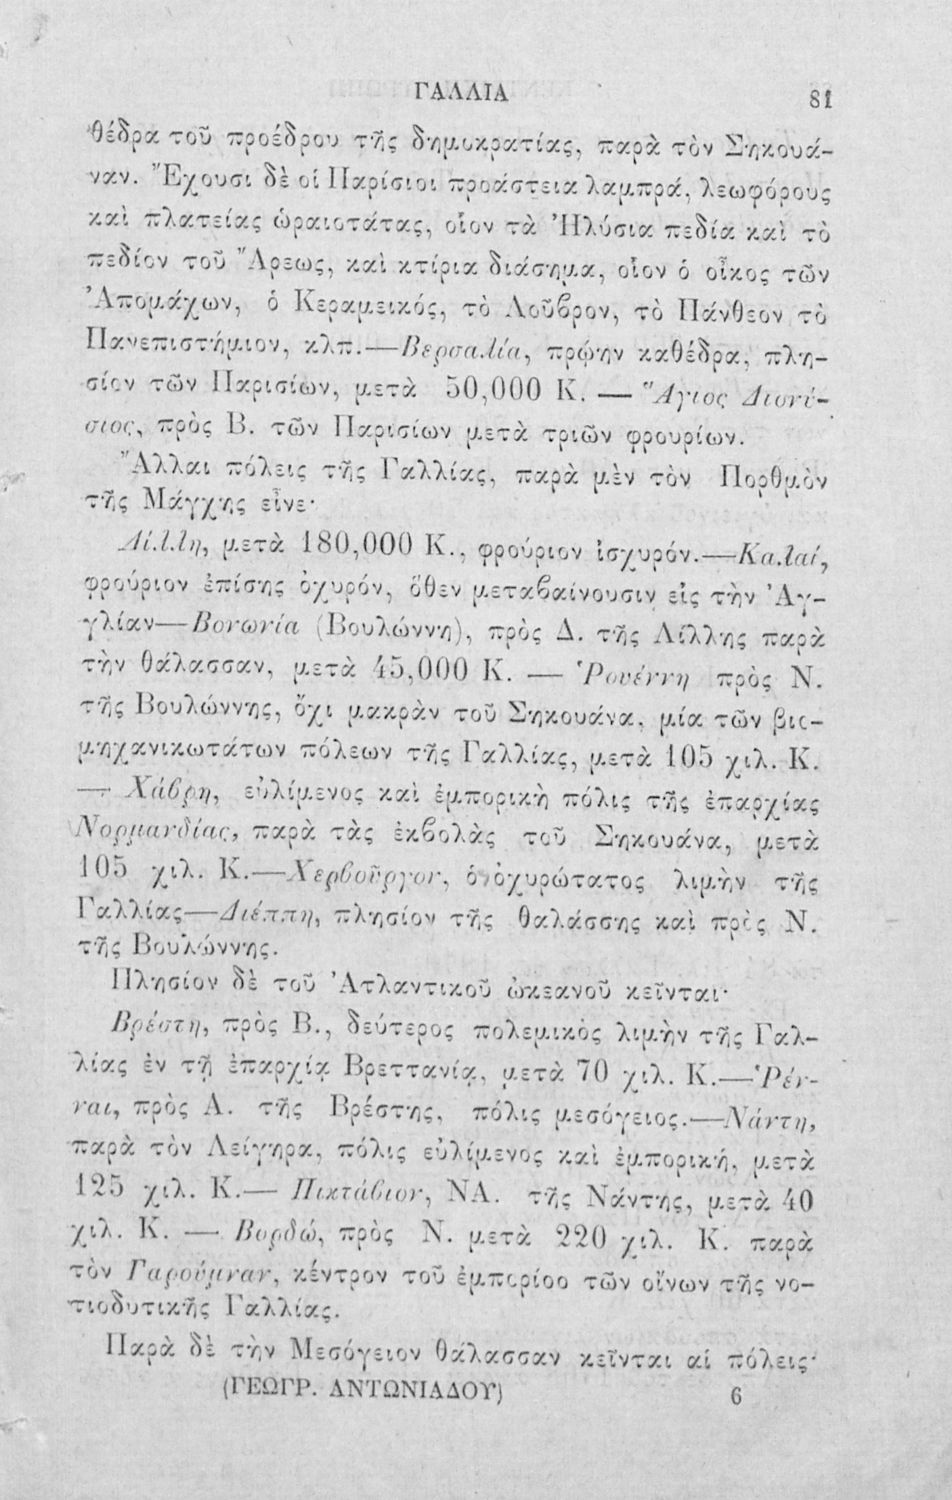 ΓΑΛΛΙΑ 81
θέδρα τοῦ προέδρου τῆς δημοκρατίας, παρὰ τὸν Σηκουά-
ναν. Ἔχουσι δὲ οἱ Παρίσιοι προάστεια λαμπρά, λεωφόρους
καὶ πλατείας ὡραιοτάτας, οἷον τὰ Ἠλύσια πεδία καὶ τὸ
πεδίον τοῦ Ἄρεως, καὶ κτίρια διάσημα, οἷον ὁ οἶκος τῶν
Ἀπομάχων, ὁ Κεραμεικός, τὸ Λοῦβρον, τὸ Πάνθεον τὸ
Πανεπιστήμιον, κλπ.—Βερσαλία, πρῴην καθέδρα, πλη-
σίον τῶν Παρισίων, μετὰ 50,000 Κ. — Ἅγιος Διονύ-
σιος, πρὸς Β. τῶν Παρισίων μετὰ τριῶν φρουρίων.
Ἄλλαι πόλεις τῆς Γαλλίας, παρὰ μὲν τὸν Πορθμὸν
τῆς Μάγχης εἶνε·
Λίλλη, μετὰ 180,000 Κ., φρούριον ἰσχυρόν.—Καλαί,
φρούριον ἐπίσης ὀχυρόν, ὅθεν μεταβαίνουσιν εἰς τὴν Ἀγ-
γλίαν—Βονωνία (Βουλώννη), πρὸς Δ. τῆς Λίλλης παρὰ
τὴν θάλασσαν, μετὰ 45,000 Κ. — Ῥουέννη πρὸς Ν.
τῆς Βουλώννης, ὄχι μακρὰν τοῦ Σηκουάνα, μία τῶν βιο-
μηχανικωτάτων πόλεων τῆς Γαλλίας, μετὰ 105 χιλ. Κ.
— Χάβρη, εὐλίμενος καὶ ἐμπορικὴ πόλις τῆς ἐπαρχίας
Νορμανδίας, παρὰ τὰς ἐκβολὰς τοῦ Σηκουάνα, μετὰ
105 χιλ. Κ.—Χερβοῦργον, ὁ ὀχυρώτατος λιμὴν τῆς
Γαλλίας—Διέππη, πλησίον τῆς θαλάσσης καὶ πρὸς Ν.
τῆς Βουλώννης.
Πλησίον δὲ τοῦ Ἀτλαντικοῦ ὠκεανοῦ κεῖνται·
Βρέστη, πρὸς Β., δεύτερος πολεμικὸς λιμὴν τῆς Γαλ-
λίας ἐν τῇ ἐπαρχίᾳ Βρεττανίᾳ, μετὰ 70 χιλ. Κ.—Ῥέν-
ναι, πρὸς Α. τῆς Βρέστης, πόλις μεσόγειος.—Νάντη,
παρὰ τὸν Λείγηρα, πόλις εὐλίμενος καὶ ἐμπορική, μετὰ
125 χιλ. Κ.— Πικτάβιον, ΝΑ. τῆς Νάντης, μετὰ 40
χιλ. Κ. — Βορδώ, πρὸς Ν. μετὰ 220 χιλ. Κ. παρὰ
τὸν Γαρούμναν, κέντρον τοῦ ἐμπορίοο τῶν οἴνων τῆς νο-
τιοδυτικῆς Γαλλίας.
Παρὰ δὲ τὴν Μεσόγειον θάλασσαν κεῖνται αἱ πόλεις·
(ΓΕΩΓΡ. ΑΝΤΩΝΙΑΔΟΥ) 6